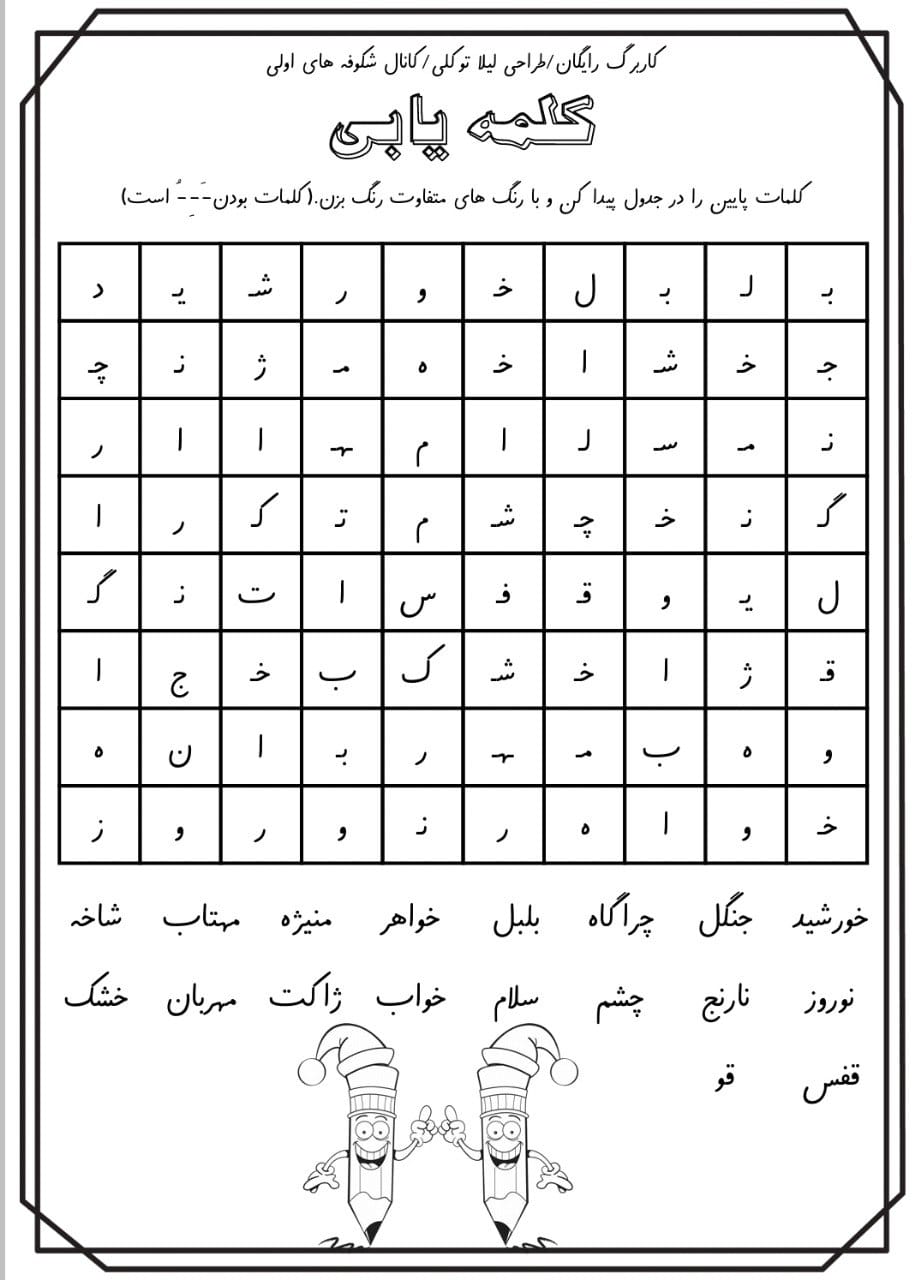 کاربرگ رایگان/طراحی لیلا توکلی/کانال شکوفه های اولی
کلمه یابی
کلمات پایین را در جدول پیدا کن و با رنگ های متفاوت رنگ بزن.(کلمات بودن ـَـ ـِـ ـُ است)
بـ لـ بـ ل خـ و ر شـ یـ د
جـ خـ شـ ا خـ ه مـ ژ نـ چـ
نـ مـ سـ لـ ا م ـهـ ا ا ر
گـ نـ خـ چـ شـ م تـ کـ ر ا
ل یـ و قـ فـ س ا ت نـ گـ
قـ ژ ا خـ شـ ک ب خـ ج ا
و ه ب مـ ـهـ ر بـ ا ن ه
خـ و ا ه ر نـ و ر و ز
خورشید جنگل چراگاه بلبل خواهر منیژه مهتاب شاخه
نوروز نارنج چشم سلام خواب ژاکت مهربان خشک
قفس قو